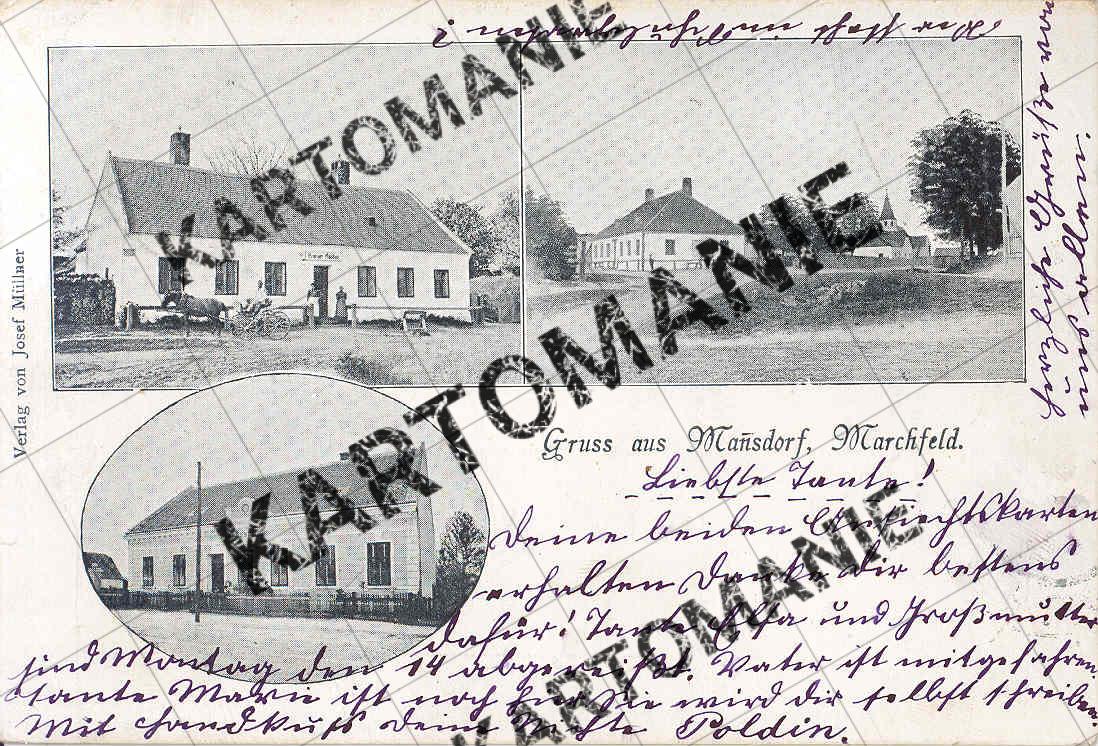 Verlag von Josef Müllner
Gruss aus Mañsdorf, Marchfeld.
Liebste Tante!
Deine beiden Ansichtskarten
erhalten Danke dir bestens
dafür! Tante Elsa und Großmutter
sind Montag den 14 abgereißt. Vater ist mitgefahren.
Tante Marie ist noch hier sie wird dir selbst schreiben.
Mit Handkuß deine Nichte Poldin.
herzliche Grüße von
uns allen.
KARTOMANIE
KARTOMANIE
KARTOMANIE
KARTOMANIE